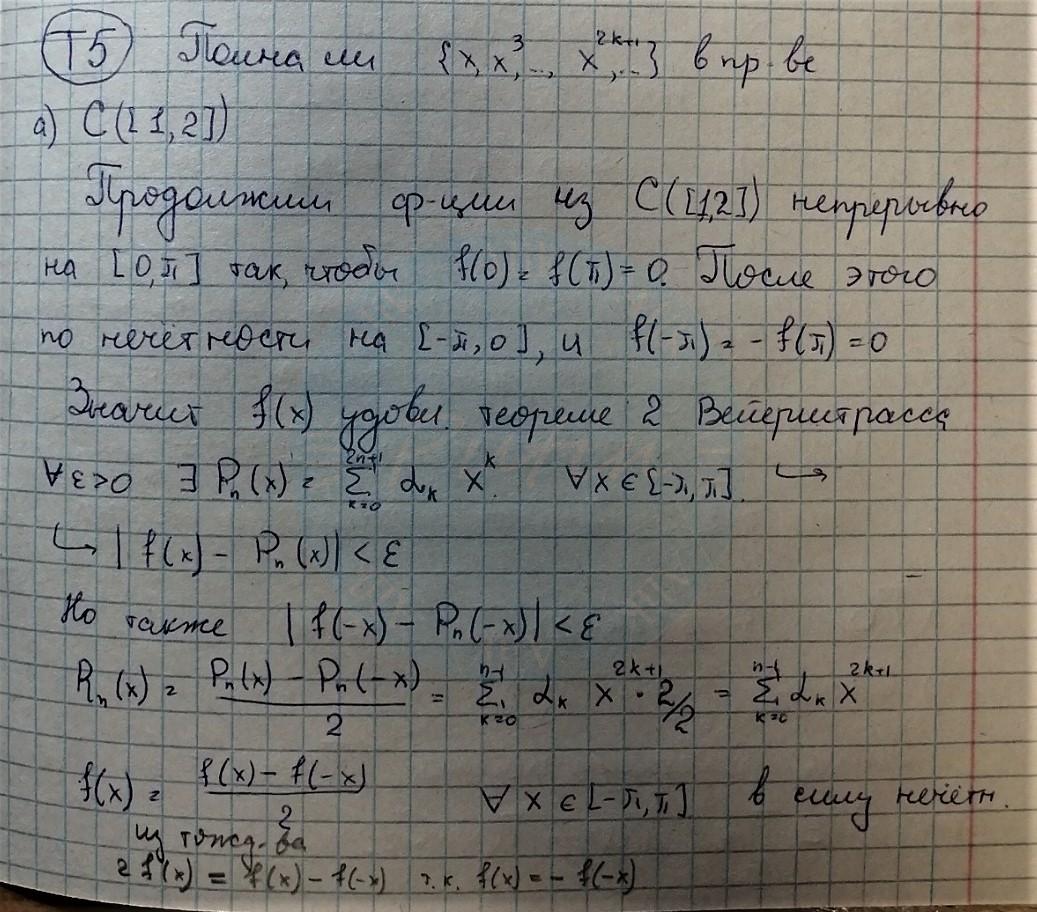 T5 Полна ли {x, x³, .., x^{2k+1}, ..} в пр-ве
а) C([1,2])
Продолжим ф-ции из C([1,2]) непрерывно
на [0,π] так, чтобы f(0) = f(π) = 0. После этого
по нечётности на [-π,0], и f(-π) = - f(π) = 0
Значит f(x) удовл. теореме 2 Вейерштрасса
∀ε>0 ∃ Pₙ(x) = ∑_{k=0}^{2n+1} α_k x^k ∀x∈[-π,π] ↪
↪ |f(x) - Pₙ(x)| < ε
Но также |f(-x) - Pₙ(-x)| < ε
Rₙ(x) = (Pₙ(x) - Pₙ(-x))/2 = ∑_{k=0}^{n-1} α_k x^{2k+1} · 2/2 = ∑_{k=0}^{n-1} α_k x^{2k+1}
f(x) = (f(x) - f(-x))/2 ∀x∈[-π,π] в силу нечётн.
из тожд-ва
2f(x) = f(x) - f(-x) т.к. f(x) = - f(-x)